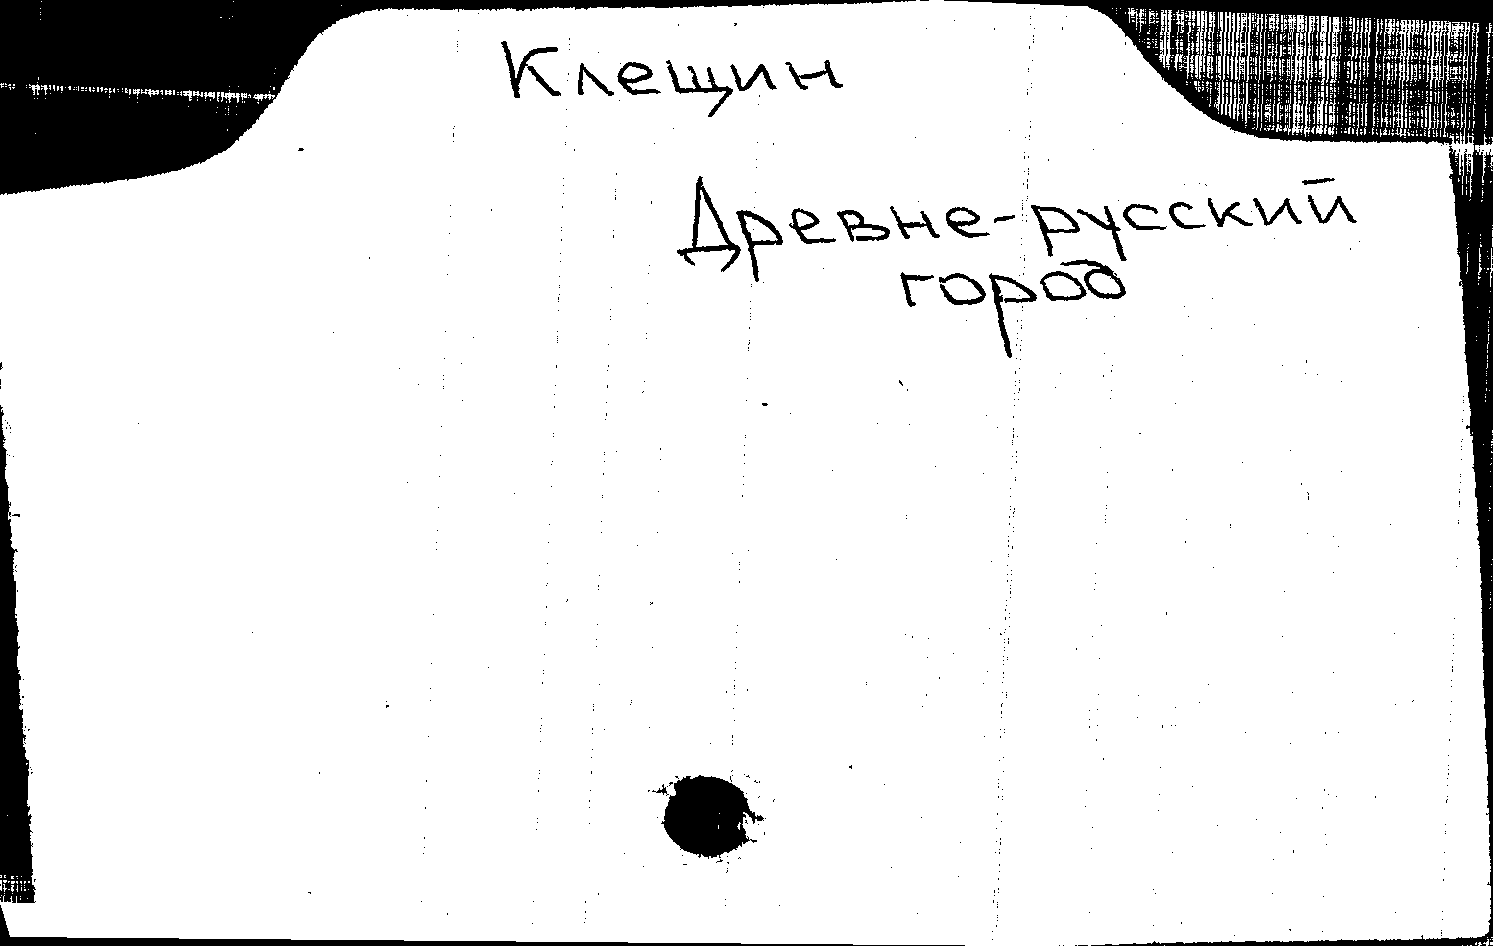 Клещин
Древне-русский
город